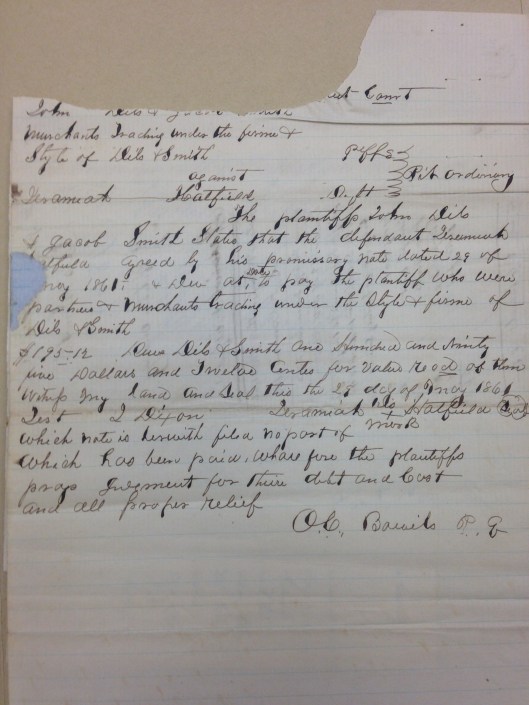 Court
John Dils & Jacob Smith
Merchants Trading under the firme &
Style of Dils & Smith Plffs
against Pet ordinary
Jeramiah Hatfield Deft
The plaintiffs John Dils
& Jacob Smith States that the defendant Jeremiah
Hatfield agreed by his promissory note dated 29 of
May 1861 & Due to pay the plantiff who were
partners & Merchants trading under the Style & firme of
Dils & Smith
$195-12 Due Dils & Smith one Hundred and Ninty
five Dollars and Twelve Centes for value recd of them
my hand and Seal this the 29 day of May 1861
Test J Dixon Jeramiah his x mark Hatfield Seal
which note is herwith filed no part of
which has been paid. Wharefore the plantiffs
prays Judgment for there debt and Cost
and all proper relief
O.C. P. Q